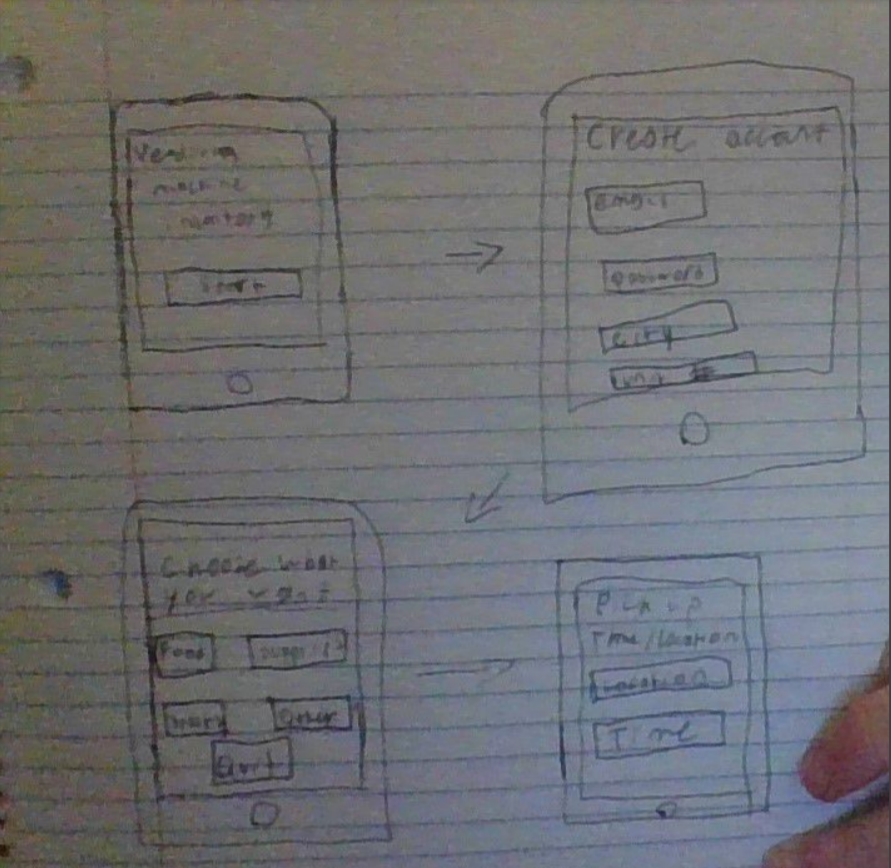 Vending
machine
Start
Create account
Email
Password
City
Choose what
you want
Food
Other
Pick up
Time/Location
Location
Time